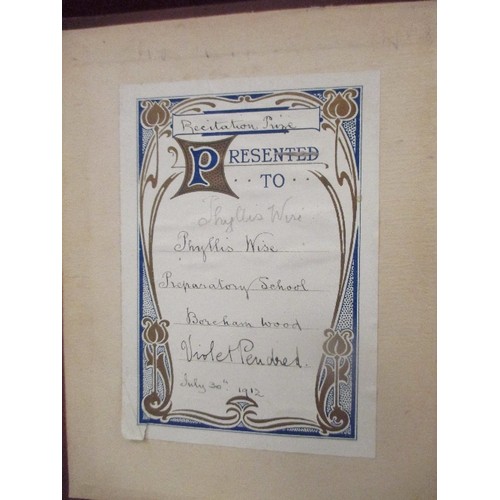 Recitation Prize
PRESENTED
TO
Phyllis Wise
Phyllis Wise
Preparatory School
Boreham Wood
Violet Pendred.
July 30th 1912